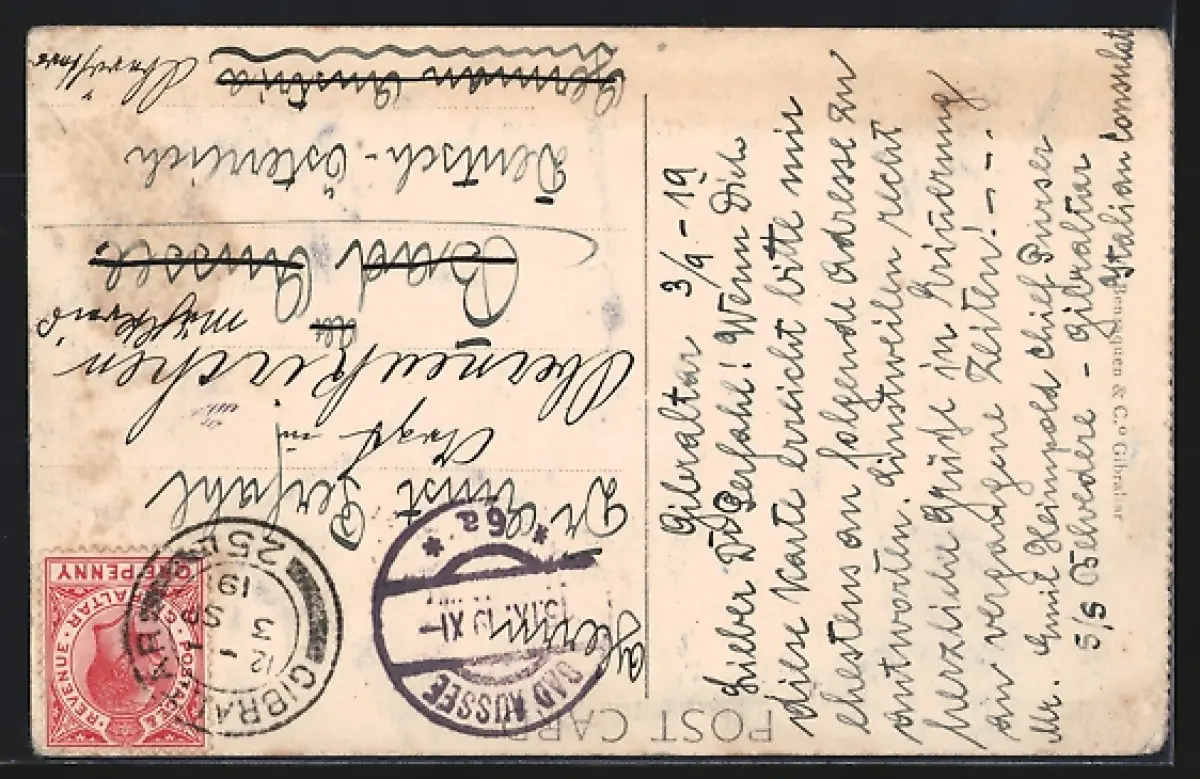 POST CARD
Gibraltar 3/9-19
Lieber Dr Perfahl! Wenn Dich
diese Karte erreicht bitte mir
ehestens an folgende Adresse zu
antworten. Einstweilen recht
herzliche Grüße in Erinnerung
an vergangene Zeiten! - - - .
Mr. Emil Heimpold Chief Purser
S/S Belvedere - Gibraltar
Italian Consulat
& Cº Gibraltar
Herrn
Dr Ernst Perfahl
Arzt in
Oberneukirchen
Mühlkreis
Bad Aussee
Deutsch-Österreich
German Austria
GIBRALTAR
12
3 SP
19
25
BAD AUSSEE
* 6a *
GIBRALTAR
POSTAGE & REVENUE
ONE PENNY